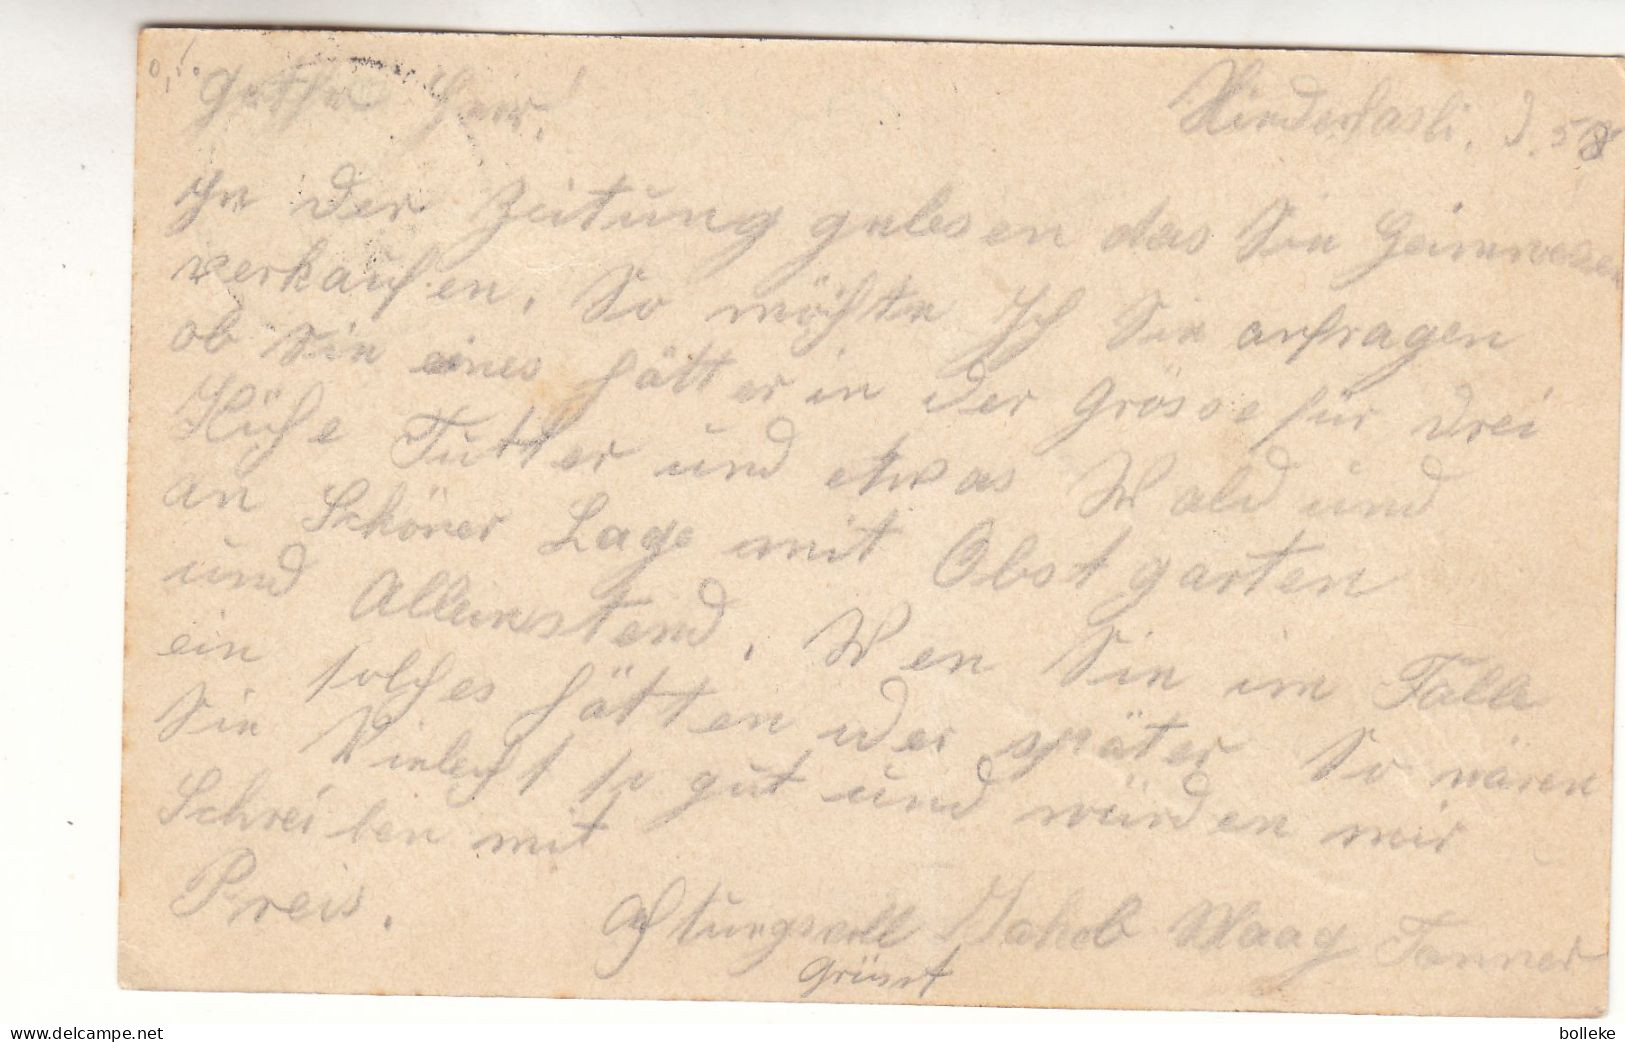 Gethr Herr!
Niederhasli, J. 5/8
In der Zeitung gelesen das Sie Heimwesen
verkaufen. So möchte Ich Sie anfragen
ob Sie eines hätten in der Grösse für drei
Kühe Futter und etwas Wald und
an Schöner Lage mit Obstgarten
und Alleinstend. Wen Sie im Falle
ein solches hätten oder später So wären
Sie Vieleicht so gut und würden mir
Schreiben mit
Preis.
Achtungsvoll Jakob Maag Tanner
Grüsst
bolleke
www.delcampe.net